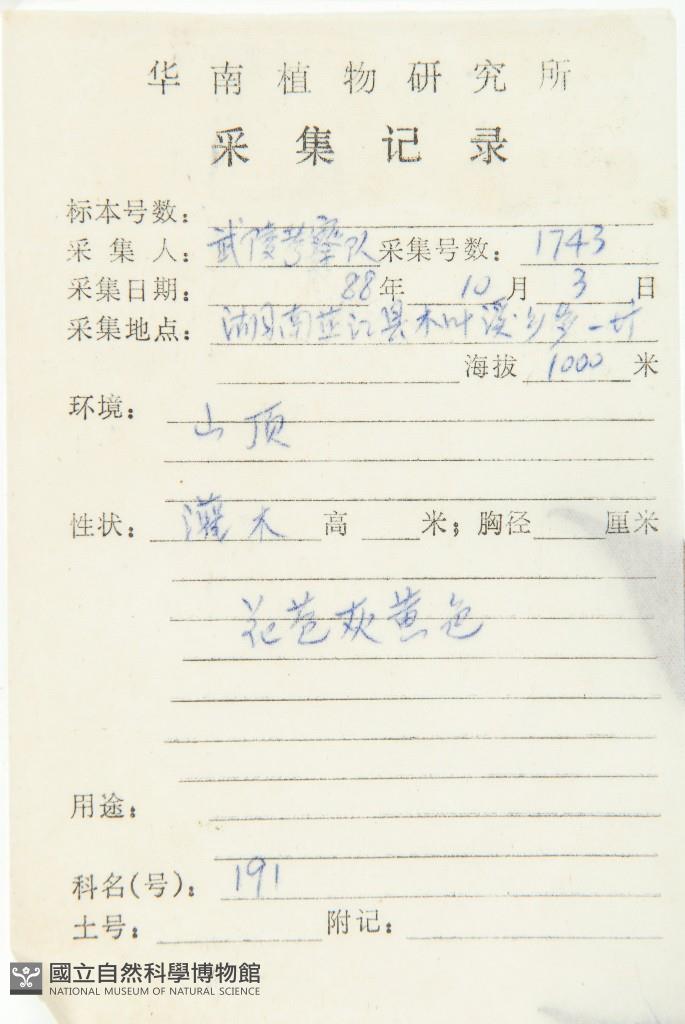 华南植物研究所
采集记录
标本号数:
采集人: 武陵考察队 采集号数: 1743
采集日期: 88年 10月 3日
采集地点: 湖南芷江县木叶溪乡 一
海拔 1000 米
环境: 山顶
性状: 灌木 高 米; 胸径 厘米
花苞灰黄色
用途:
科名(号): 191
土号: 附记:
國立自然科學博物館
NATIONAL MUSEUM OF NATURAL SCIENCE